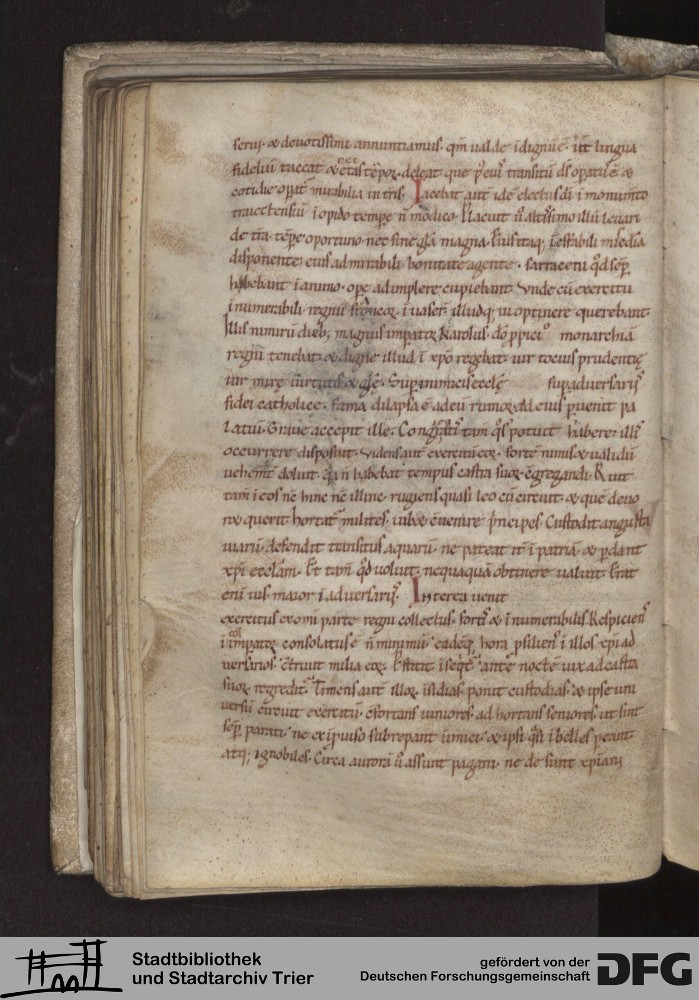 serui · & deuotissimi annuntiamus · qm ualde idignu e · ut lingua
fideliu taceat
cotidie opat mirabilia in tris · Iacebat aut ide electus di i monumto
traiectensiu i opido tempe n modico · Placuit u altissimo illu leuari
de tra tepe oportuno nec sine gla magna ·
disponente · eius admirabili bonitate agente · sarraceni qd sep
habebant i animo · ope adimplere cupiebant · Unde cu exercitu
inumerabili regnu francoz iuaser illudq; ui optinere querebant ·
Illis nimiru dieb; magnus impator Karolus · do ppicio monarchia
regni tenebat · & digne illud i xpo regebat · uir tocius prudentie
uir mire uirtutis & gle · Sup inimicis eccle sup aduersariis
fidei catholice · fama dilapsa e adeu rumor · ad eius puenit pa
latiu · Graue accepit ille · Congregatis tam qs potuit habere · illis
occurrere disposuit · Uidens aut exercitu eoz · forte nimis & ualidu
uehemt doluit · qa n habebat tempus castra suoz egregandi · Ruit
tam i eos nc hinc nc illinc · rugiens quasi leo cu circuit · & que deuo
ret querit hortat milites · iubet euenire principes · Custodit angusta
uiaru · defendit transitus aquaru · ne pateat it i patria · & pdant
xpi ecclam · Et tam qd uoluit · nequaqua obtinere ualuit · Erat
eni uis maior i aduersariis · Interea uenit
exercitus ex omi parte regni collectus · fortis & inumerabilis Respiciens
impator consolatus e n minimu · eadeq hora psilien i illos xpi ad
uersarios · struit milia eoz · Pstitit i seqt ante nocte uix ad castra
suoz regredit · Timens aut illoz isidias · ponit custodias · & ipse uni
uersu circuit exercitu · cfortans iuniores · adhortans seniores · ut sint
sep parati · ne ex iprouiso subrepant inimici · & ipsi qsi ibelles pereant
atq; ignobiles · Circa aurora u assunt pagani · ne de sunt xpiani
Stadtbibliothek
und Stadtarchiv Trier
gefördert von der
Deutschen Forschungsgemeinschaft
DFG